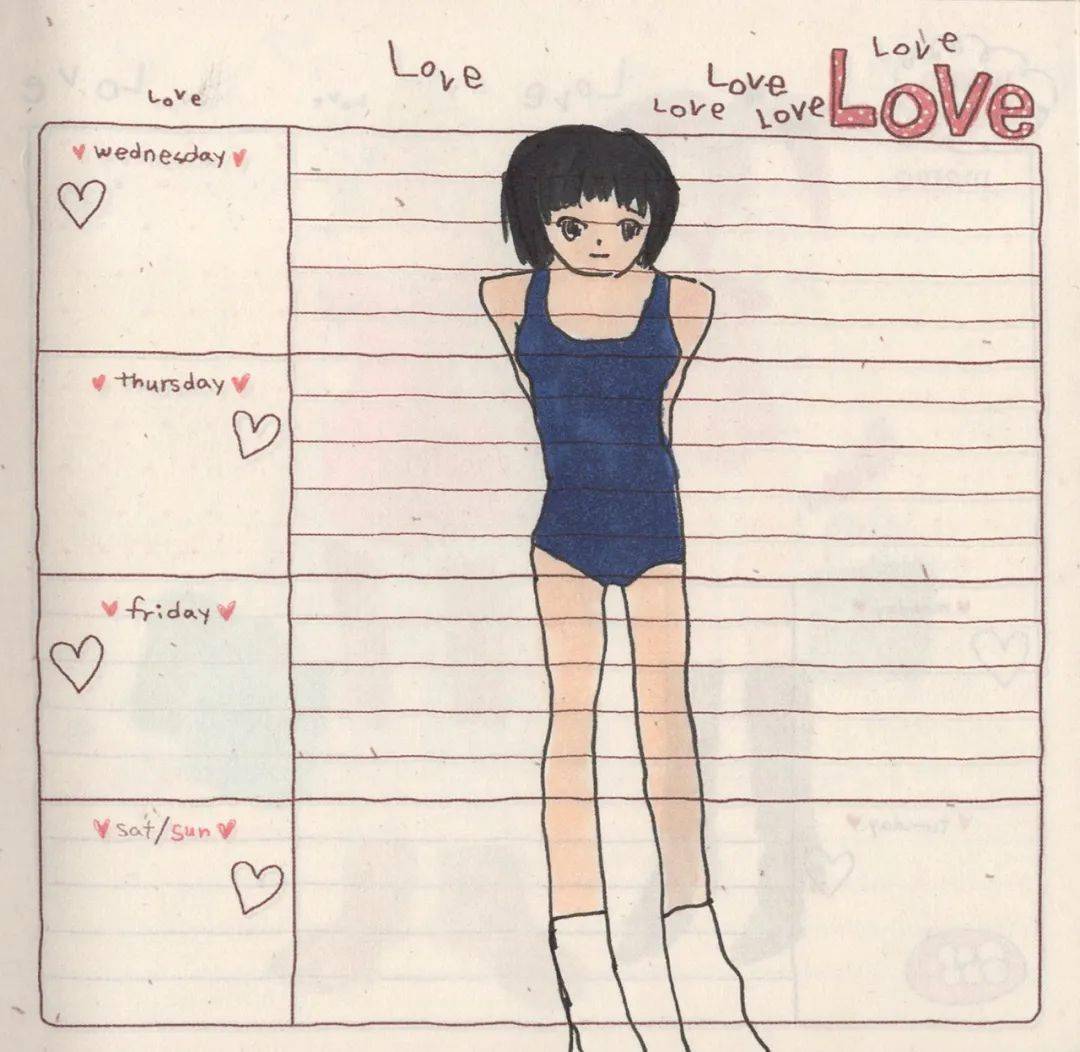 Love
Love
Love
Love
Love
Love
LoVe
wednesday
thursday
friday
sat/sun